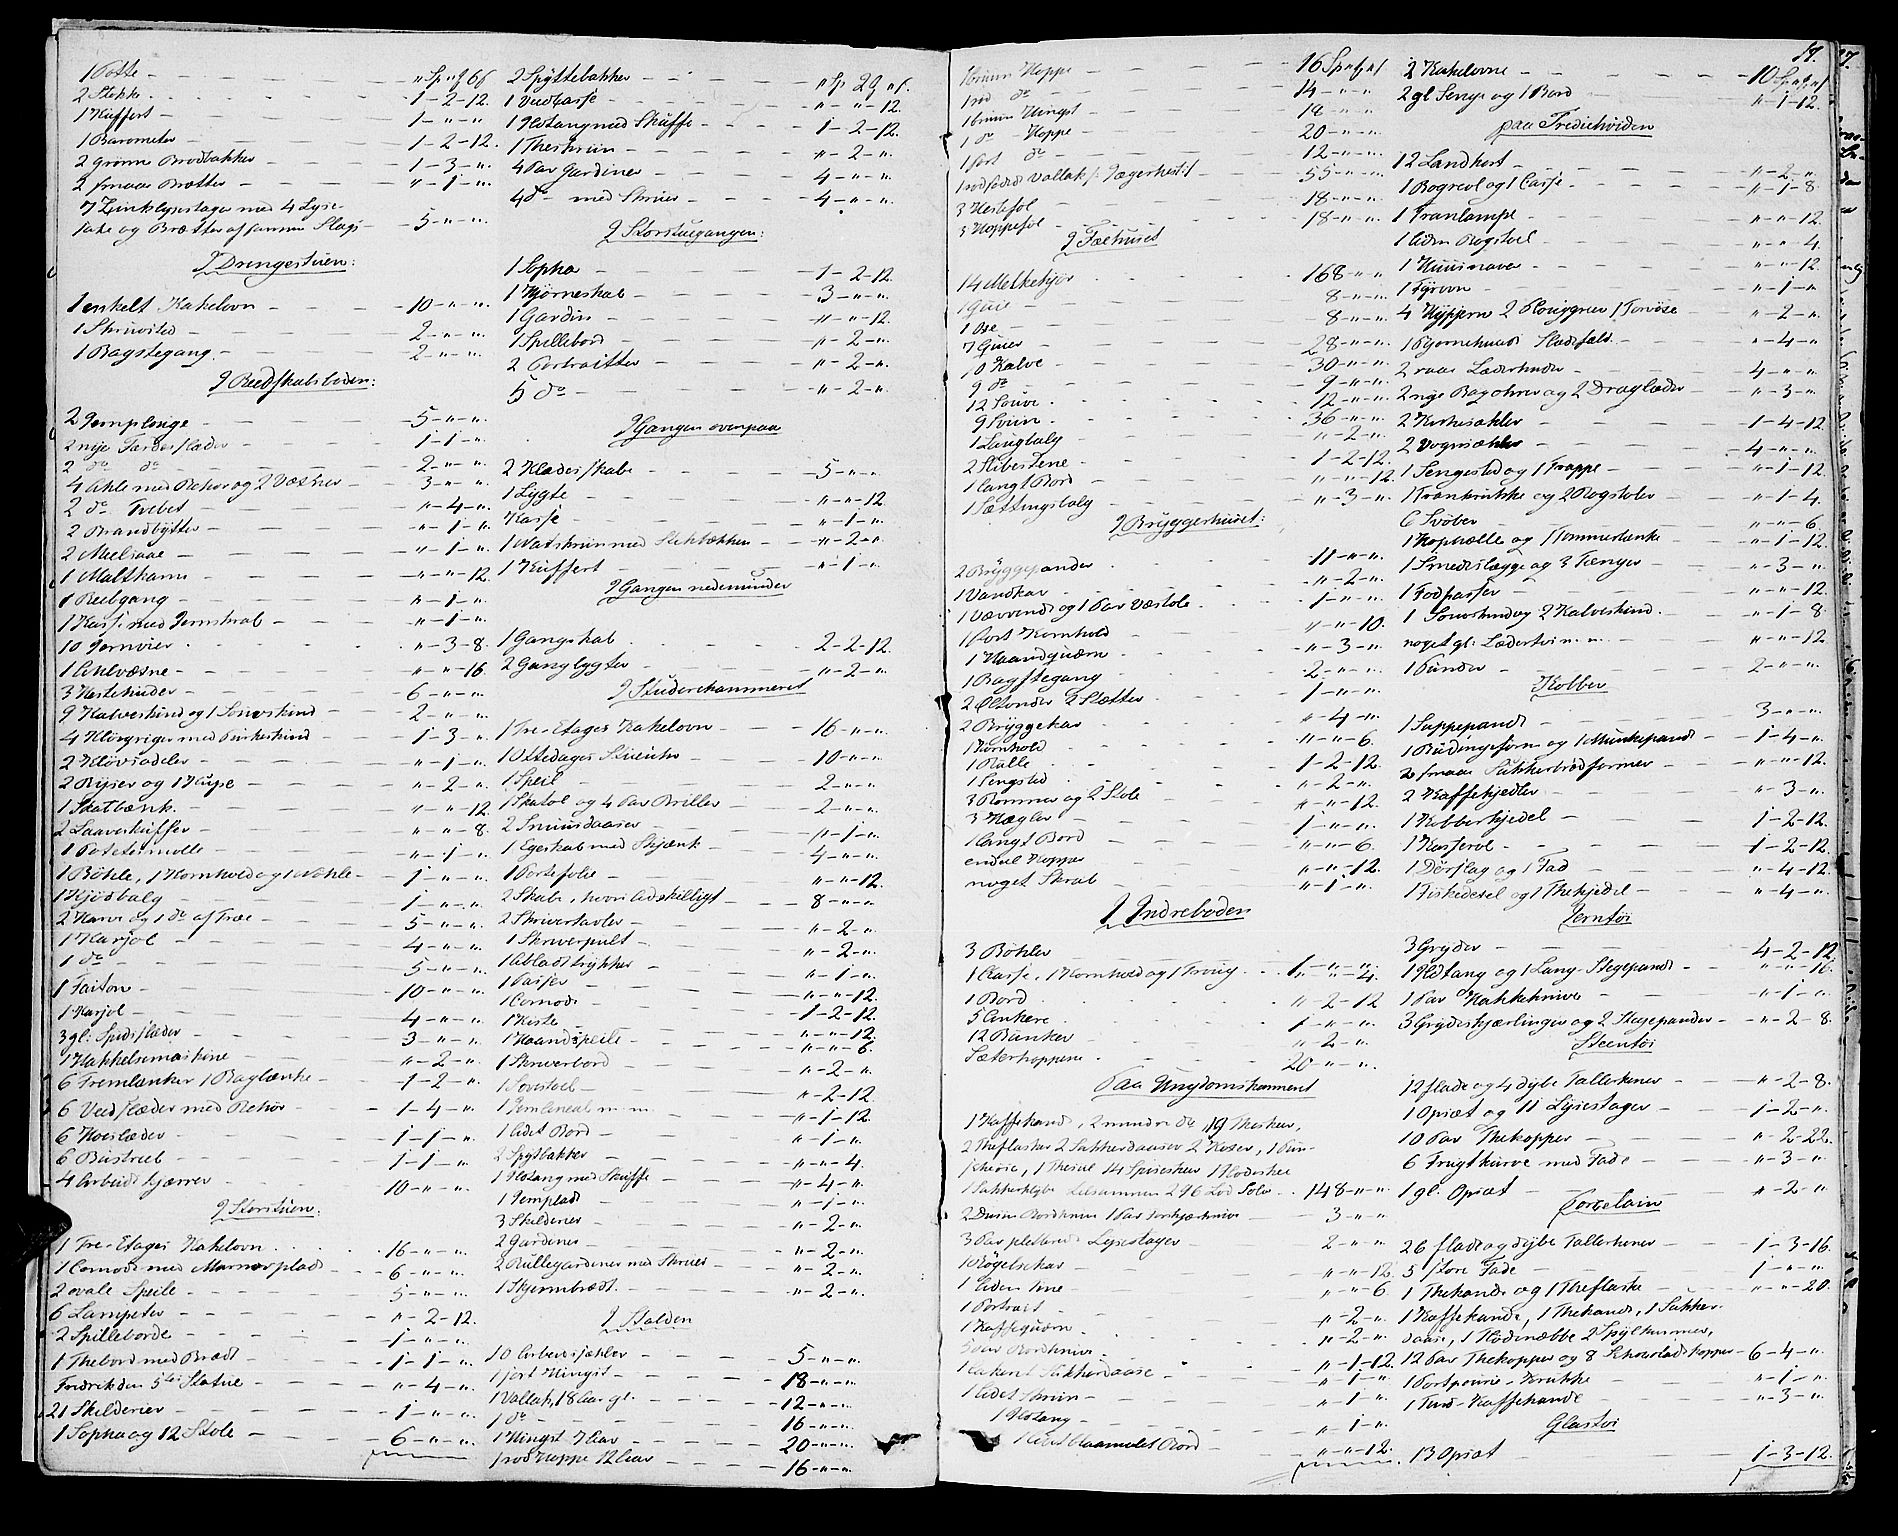 1 Potte - " Sp " § 6 s
2 Stokke - 1-2-12.
1 Kuffert - 1-"-"
1 Barometer - 1-2-12.
2 grønne Brødbakker - 1-3-".
2 smaae Brætter - "-1-".
7 Zinklysestager med 4 Lyse-
sakse og Brætter af samme Slags - 5-"-".
I Drengestuen:
1 enkelt Kakelovn - 10-"-".
1 Skriversted - 2-"-".
1 Bagstegang - 2-"-".
I Redskabsboden:
2 Jernplouge - 5-"-".
2 nye Færdesslæder - 1-1-".
2 do do - 2-"-".
4 Ahle med Rehor og 2 Væsner - 3-"-".
2 do Tvebet - "-4-".
2 Brandbytter - "-1-".
2 Meelsaae - "-1-".
1 Maltkarm - "-"-12.
1 Reebgang - "-1-".
1 Kasse med Jernskrab - "-1-".
10 Jernvier - "-3-8.
1 Ahlvæsne - "-"-16
3 Hestehuder - 6-"-".
9 Kalveskind og 1 Soueskind - 2-"-".
4 Kløvgriger med Purkeskind - 1-3-".
2 Kløvsadeler - "-1-".
2 Ryser og 1 Kupe - "-2-".
1 Skatbænk - "-"-12.
2 Laaverkuffer - "-"-8.
1 Potetesmølle - "-1-".
1 Bøhle, 1 Kornhold og 1 Nohle - 1-"-".
1 Kjødbalg - 1-"-".
2 Harve og 1 do af Træe - 5-"-".
1 Karjol - 4-"-".
1 do - 5-"-".
1 Faiton - 10-"-".
1 Karjol - 4-"-".
3 gl: Spidsslæder - 3-"-".
1 Hakkelsemaskine - "-2-".
6 Fremlænker 1 Baglænke - 1-2-".
6 Vedslæder med Rehør - 1-4-".
6 Hoeslæder - 1-1-".
6 Bustreel - 1-1-".
4 Arbeidskjærrer - 10-"-".
I Storstuen:
1 Tre-Etages Kakelovn - 16-"-".
1 Comode med Marmorplade - 6-"-".
2 ovale Speile - 5-"-".
6 Lampeter - "-2-12.
2 Spilleborde - 1-"-".
1 Thebord med Brædt - 1-1-".
Fredrik den 5te Statue - "-4-".
21 Skilderier - 1-"-".
1 Sopha og 12 Stole - 6-"-".
2 Spyttebakker - " Sp 2 § " s.
1 Vedkasse - "-"-12.
1 Ildtang med Skuffe - 1-2-12.
1 Theskrin - "-2-".
4 Par Gardiner - 4-"-".
4 do - med Skruer - 4-"-".
I Storstuegangen:
1 Sopha - 1-2-12.
1 Hjørneskab - 3-"-".
1 Gardin - "-"-12.
1 Spillebord - "-2-".
2 Portraitter - "-2-".
5 do - "-2-".
I Gangen ovenpaa
2 Klædesskabe - 5-"-".
1 Lygte - "-"-12.
1 Kasse - "-1-".
1 Natskrin med Stikbækken - "-2-".
1 Kuffert - "-1-".
I Gangen nedenunder
1 Gangskab - 2-2-12.
2 Ganglygter - "-2-".
I Studerekammeret
1 Tre-Etages Kakelovn - 16-"-".
1 Ottedages Stueuhr - 10-"-".
1 Speil - 2-"-".
1 Skatol og 4 Par Briller - 2-"-".
2 Snuusdaaser - "-1-".
1 Egeskab med Skjænk - 4-"-".
1 Portefolie - "-"-12.
2 Skabe, hvori adskilligt - 8-"-".
2 Skrivertavler - "-2-".
1 Skriverpult - "-2-".
1 Abladstrykker - "-1-".
1 Passer - "-"-12.
1 Comode - 1-2-12.
1 Kiste - "-"-12.
1 Haandspeile - "-"-6.
1 Skriverbord - "-2-".
1 Sovestoel - "-2-12.
1 Jernlineal m. m. - "-1-12.
1 lidet Bord - "-1-".
2 Spytbakker - "-"-4.
1 Ildtang med Skuffe - "-4-".
1 Jernplade - "-1-".
3 Skilderier - "-2-".
2 Gardiner - "-2-".
2 Rullegardiner med Skruer - "-2-".
1 Skjermbrædt - "-2-".
I Stalden
10 Arbeidssæhler - 5-"-".
1 sort Hingst - 18-"-".
1 Vallak, 18 Aar gl. - 12-"-".
1 do - 16-"-".
1 Hingst 7 Aar - 20-"-".
1 rød Hoppe 12 Aar - 16-"-".
17.
1 bruun Hoppe - 16 Sp " § " s
1 rød do - 14-"-".
1 bruun Hingst - 18-"-".
1 do - Hoppe - 20-"-".
1 sort do - 12-"-".
1 rødsidet Vallak /: Jægerhest :/ - 55-"-".
3 Hestefol - 18-"-".
3 Hoppefol - 18-"-".
I Fæehuset
14 Melkekjør - 168-"-"
1 Quie - 8-"-".
1 Oxe - 8-"-".
7 Quier - 28-"-".
10 Kalve - 30-"-".
9 do - 9-"-".
12 Souer - 12-"-".
9 Sviin - 36-"-".
1 Laugbalg - "-2-".
2 Slibestene - 1-2-12.
1 langt Bord - "-"-12.
1 Sættingsbalg - "-3-".
I Bryggerhuset:
2 Bryggepander - 11-"-".
1 Vandkar - "-2-".
1 Vævvende og 1 Par Væstole - 1-"-".
1 Sort Kornhold - "-"-10.
1 Haandquærn - "-3-".
1 Bagstegang - 2-"-".
2 Øltønder 2 Støtter - 1-"-".
2 Bryggekar - "-4-".
1 Kornhold - "-"-6.
1 Balle - 1-2-12.
1 Sengsted - "-2-".
3 Rommer og 2 Stole - "-"-12.
3 Hægler - 1-"-".
1 langt Bord - "-"-6.
endeel Kopper - "-"-12.
noget Skrab - "-1-".
I Indreboden
3 Bøhler - 1-"-".
1 Casse, 1 Kornhold og 1 Troug - "-"-4.
1 Bord - "-2-12
5 Ankere - 1-"-".
12 Bunker - "-2-".
Sæterkopperne - 20-"-".
Paa Ungdomskammeret
1 Kaffekande, 2 mindre do, 19 Theskeer,
2 Theflasker 2 Sukkerdaaser 2 Koser, 1 Pun-
scheøse, 1 Thesiel 14 Spiseskeer 1 Flødeskee
1 Sukkerklybe tilsammen 296 Lod Sølv - 148-"-"
2 Dusin Bordknive 1 Par Forskjærknive - 3-"-"
3 Par pletterede Lysestager - 2-"-"
1 Røgelsekar - "-"-12.
1 liden Tine - "-"-6
1 Portrait - "-2-"
1 Kaffequærn - "-2-"
5 Par Bordknive - "-1-12.
1 lakeret Sukkerdaase - "-1-"
1 lidet Skrin - "-1-".
1 Ildtang - "-1-"
1 lidet blaamalet Bord - "-"-12.
2 Kakelovne - 10 Sp " § " s
2 gl Senge og 1 Bord - "-1-12.
paa Frederikviden
12 Landkort - "-2-".
1 Bogreol og 1 Casse - "-1-8.
1 Tranlampe - "-"-12.
1 liden Bogstoel - "-"-4.
1 Huusnaver - "-"-12.
1 Fyrovn - "-1-"
4 Hyppern 2 Plouggreer 1 Tøriøse - "-2-".
1 Bjørnehuud Sladefald - "-4-".
2 raae Læderhuder - 4-"-".
2 nye Bagohrer og 2 Draglæder - "-3-".
2 Kirkesæhler - 1-4-12
2 Vognsæhler - 4-"-".
1 Sengested og 1 Trappe - "-1-12.
1 Krankrukke og 2 Bogstoler - "-1-4.
6 Svøber - "-"-6.
1 Kophælle og 1 Tømmerlænke - "-1-12.
1 Smedeslægge og 3 Tænger - "-3-".
1 Fodpasser - "-"-12.
1 Soueskind og 2 Kalveskind - "-1-8
noget gl: Lædertøi m. m. - "-"-12
1 Pundes - 2-"-".
Kobber
1 Suppepande - 3-"-".
1 Budingeform og 1 Munkepande - 1-4-".
2 smaae Sukkerbrødformer - "-"-12.
2 Kaffekjedler - "-3-".
1 Kobberkjedel - 1-2-12.
1 Kasserol - 1-2-12.
1 Dørslag og 1 Fad - "-4-12.
1 Fiskekjedel og 1 Thekjedel - "-4-".
Jerntøi
3 Gryder - 4-2-12
1 Ildtang og 1 Lang-Stegepande - "-"-16.
1 Par Hakkeknive - "-1-".
3 Grydeskjærlinger og 2 Stegepander - "-2-8.
Steentøi
12 flade og 4 dybe Tallerkener - "-2-8.
1 Opsæt og 11 Lysestager - 1-2-".
10 Par Thekopper - "-2-22.
6 Frugtkurve med Fade - "-3-".
1 gl. Opsæt - "-2-"
Porcelain
26 flade og dybe Tallerkener - 1-3-16.
5 store Fade - 1-"-".
1 Thekande og 1 Theflaske - "-"-20.
1 Kaffekande, 1 Thekande, 1 Sukker-
daase, 1 Flødenæbbe 2 Spylkummer,
12 Par Thekopper og 8 Schocoladekopper - 6-4-".
1 Portpouri-Krukke - "-1-".
1 Tind-Kaffekande - "-3-".
Glastøi
13 Opsæt - 1-3-12.